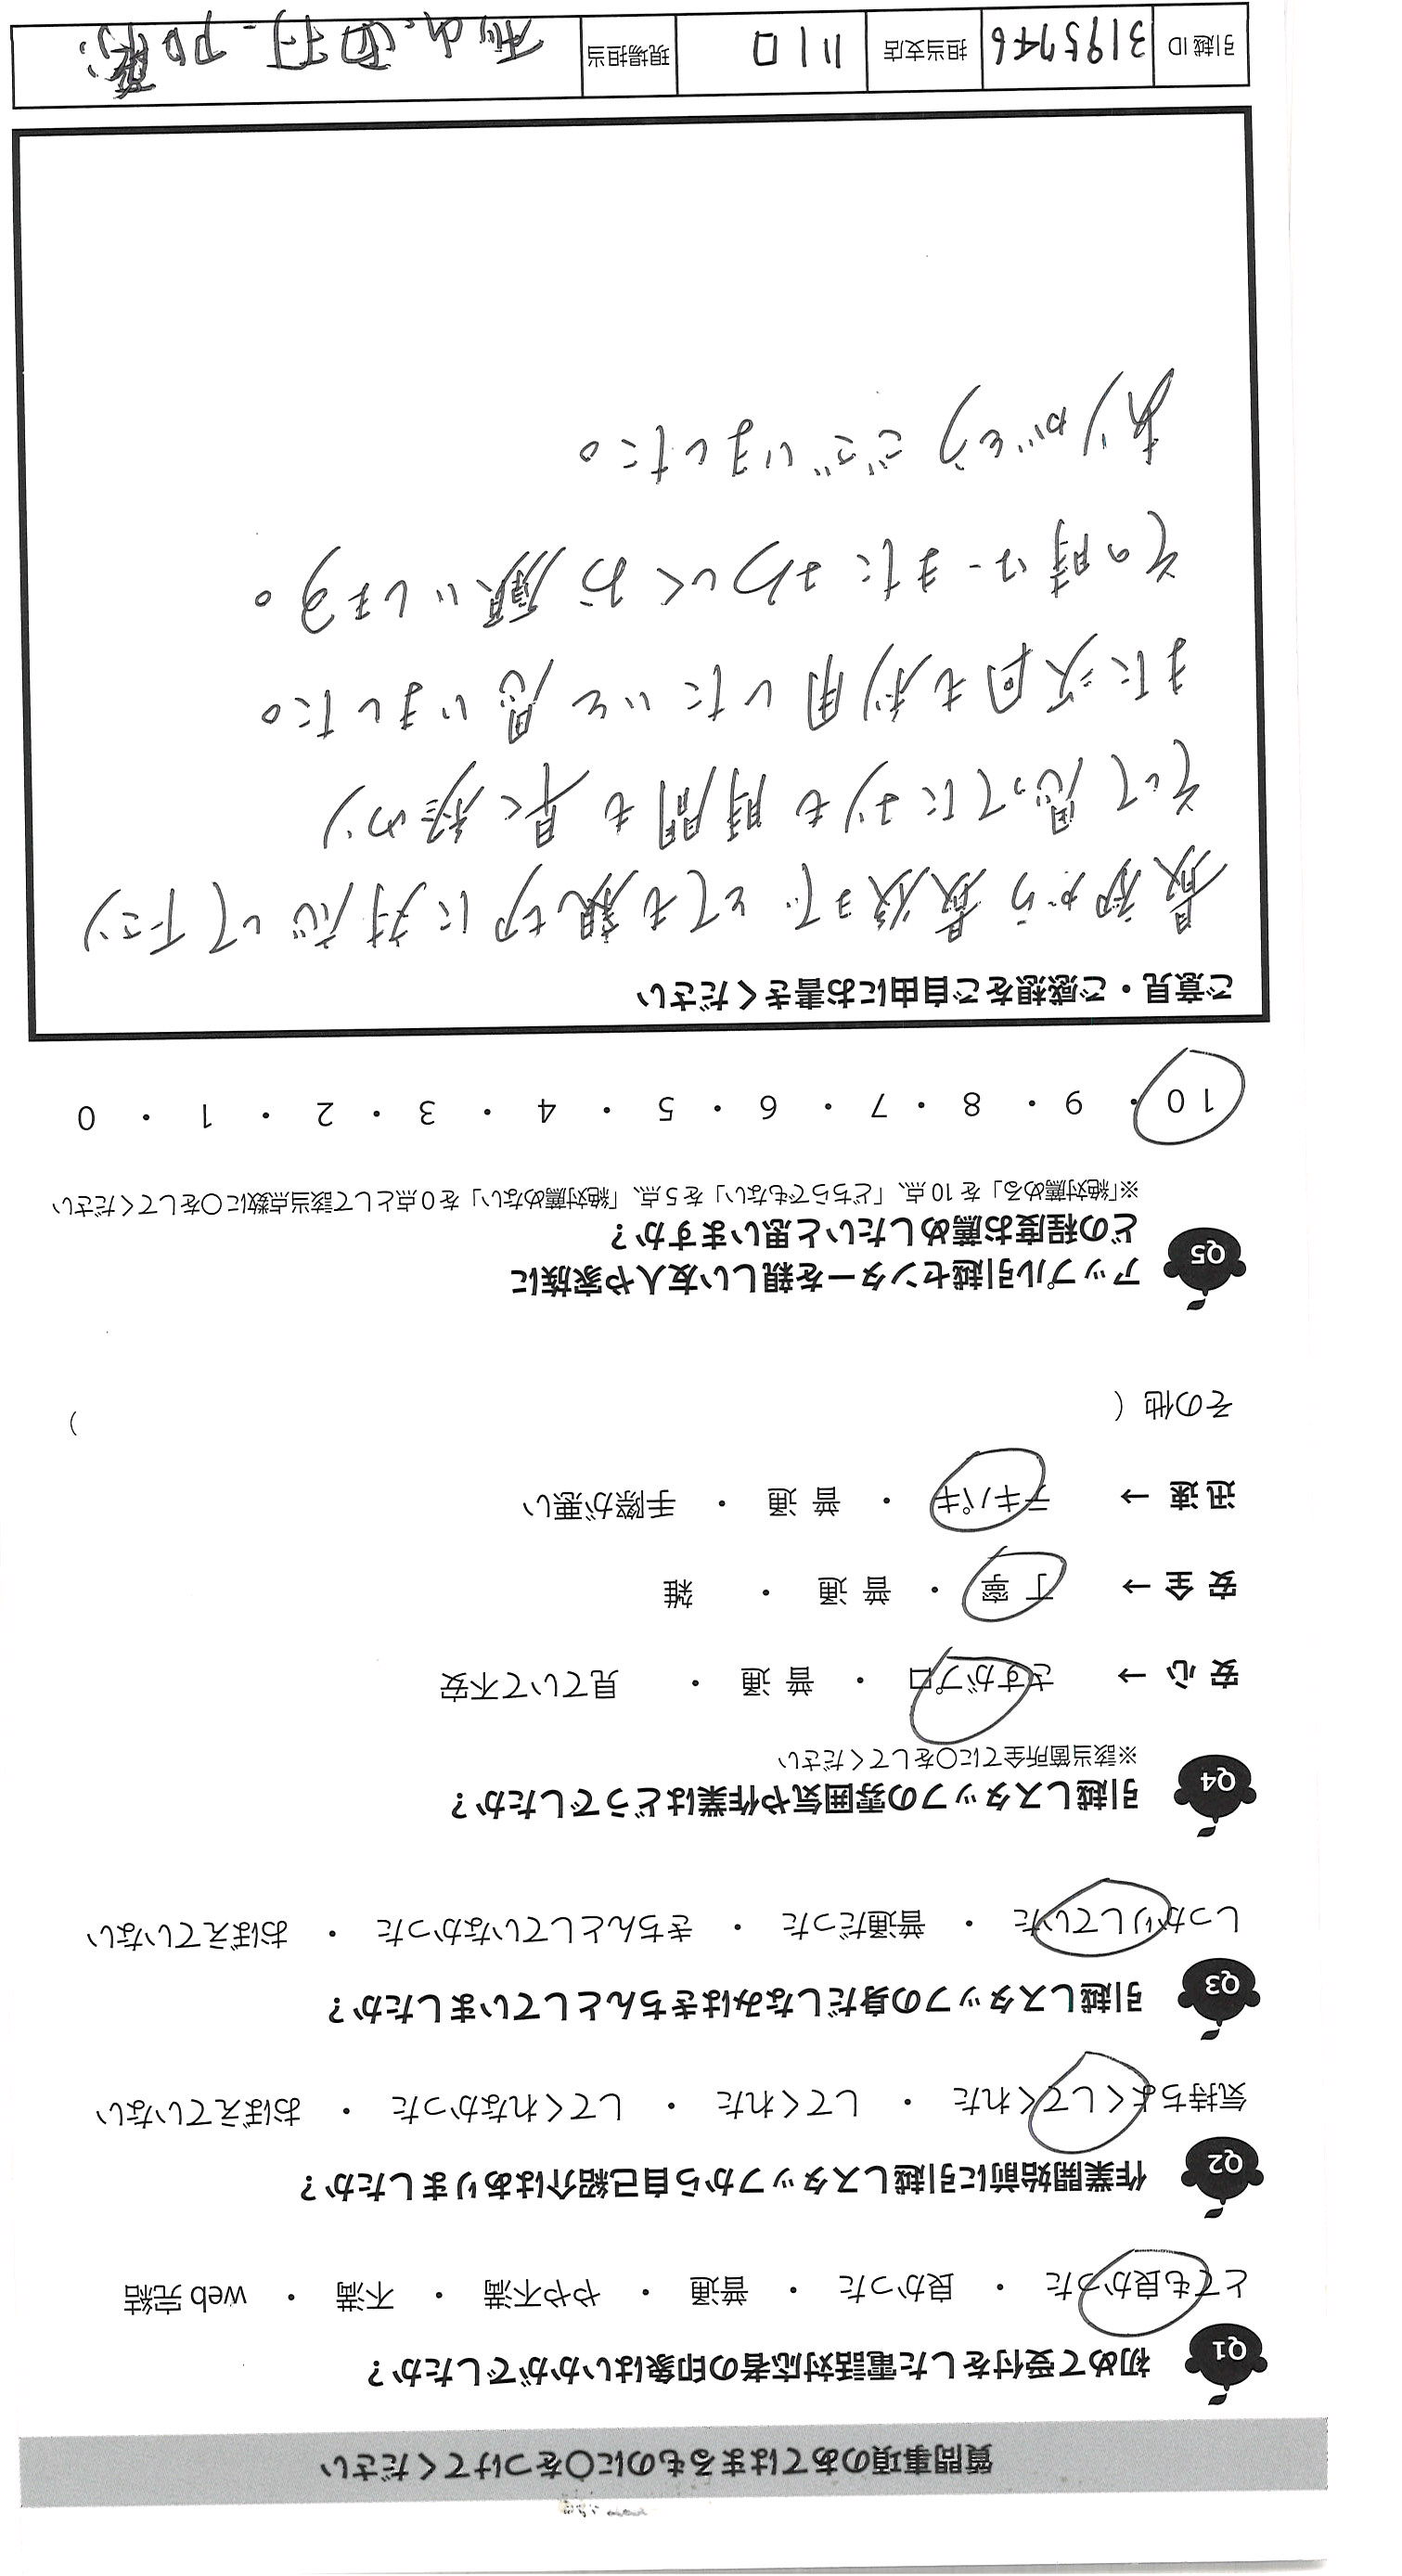 質問事項のあてはまるものに○をつけてください
Q1 初めて受付をした電話対応者の印象はいかがでしたか？
とても良かった ・ 良かった ・ 普通 ・ やや不満 ・ 不満 ・ web完結
Q2 作業開始前に引越しスタッフから自己紹介はありましたか？
気持ちよくしてくれた ・ してくれた ・ してくれなかった ・ おぼえていない
Q3 引越しスタッフの身だしなみはきちんとしていましたか？
しっかりしていた ・ 普通だった ・ きちんとしていなかった ・ おぼえていない
Q4 引越しスタッフの雰囲気や作業はどうでしたか？
※該当箇所全てに○をしてください
安心 → さすがプロ ・ 普通 ・ 見ていて不安
安全 → 丁寧 ・ 普通 ・ 雑
迅速 → テキパキ ・ 普通 ・ 手際が悪い
その他（ ）
Q5 アップル引越センターを親しい友人や家族に
どの程度お薦めしたいと思いますか？
※「絶対薦める」を10点、「どちらでもない」を5点、「絶対薦めない」を0点として該当点数に○をしてください
10 ・ 9 ・ 8 ・ 7 ・ 6 ・ 5 ・ 4 ・ 3 ・ 2 ・ 1 ・ 0
ご意見・ご感想をご自由にお書きください
最初から最後までとても親切に対応して下さり
そして思ってたよりも時間も早く終わり
また次回も利用したいと思いました。
その時は、またよろしくお願いします。
ありがとうございました。
引越ID 3195746 担当支店 川口 現場担当